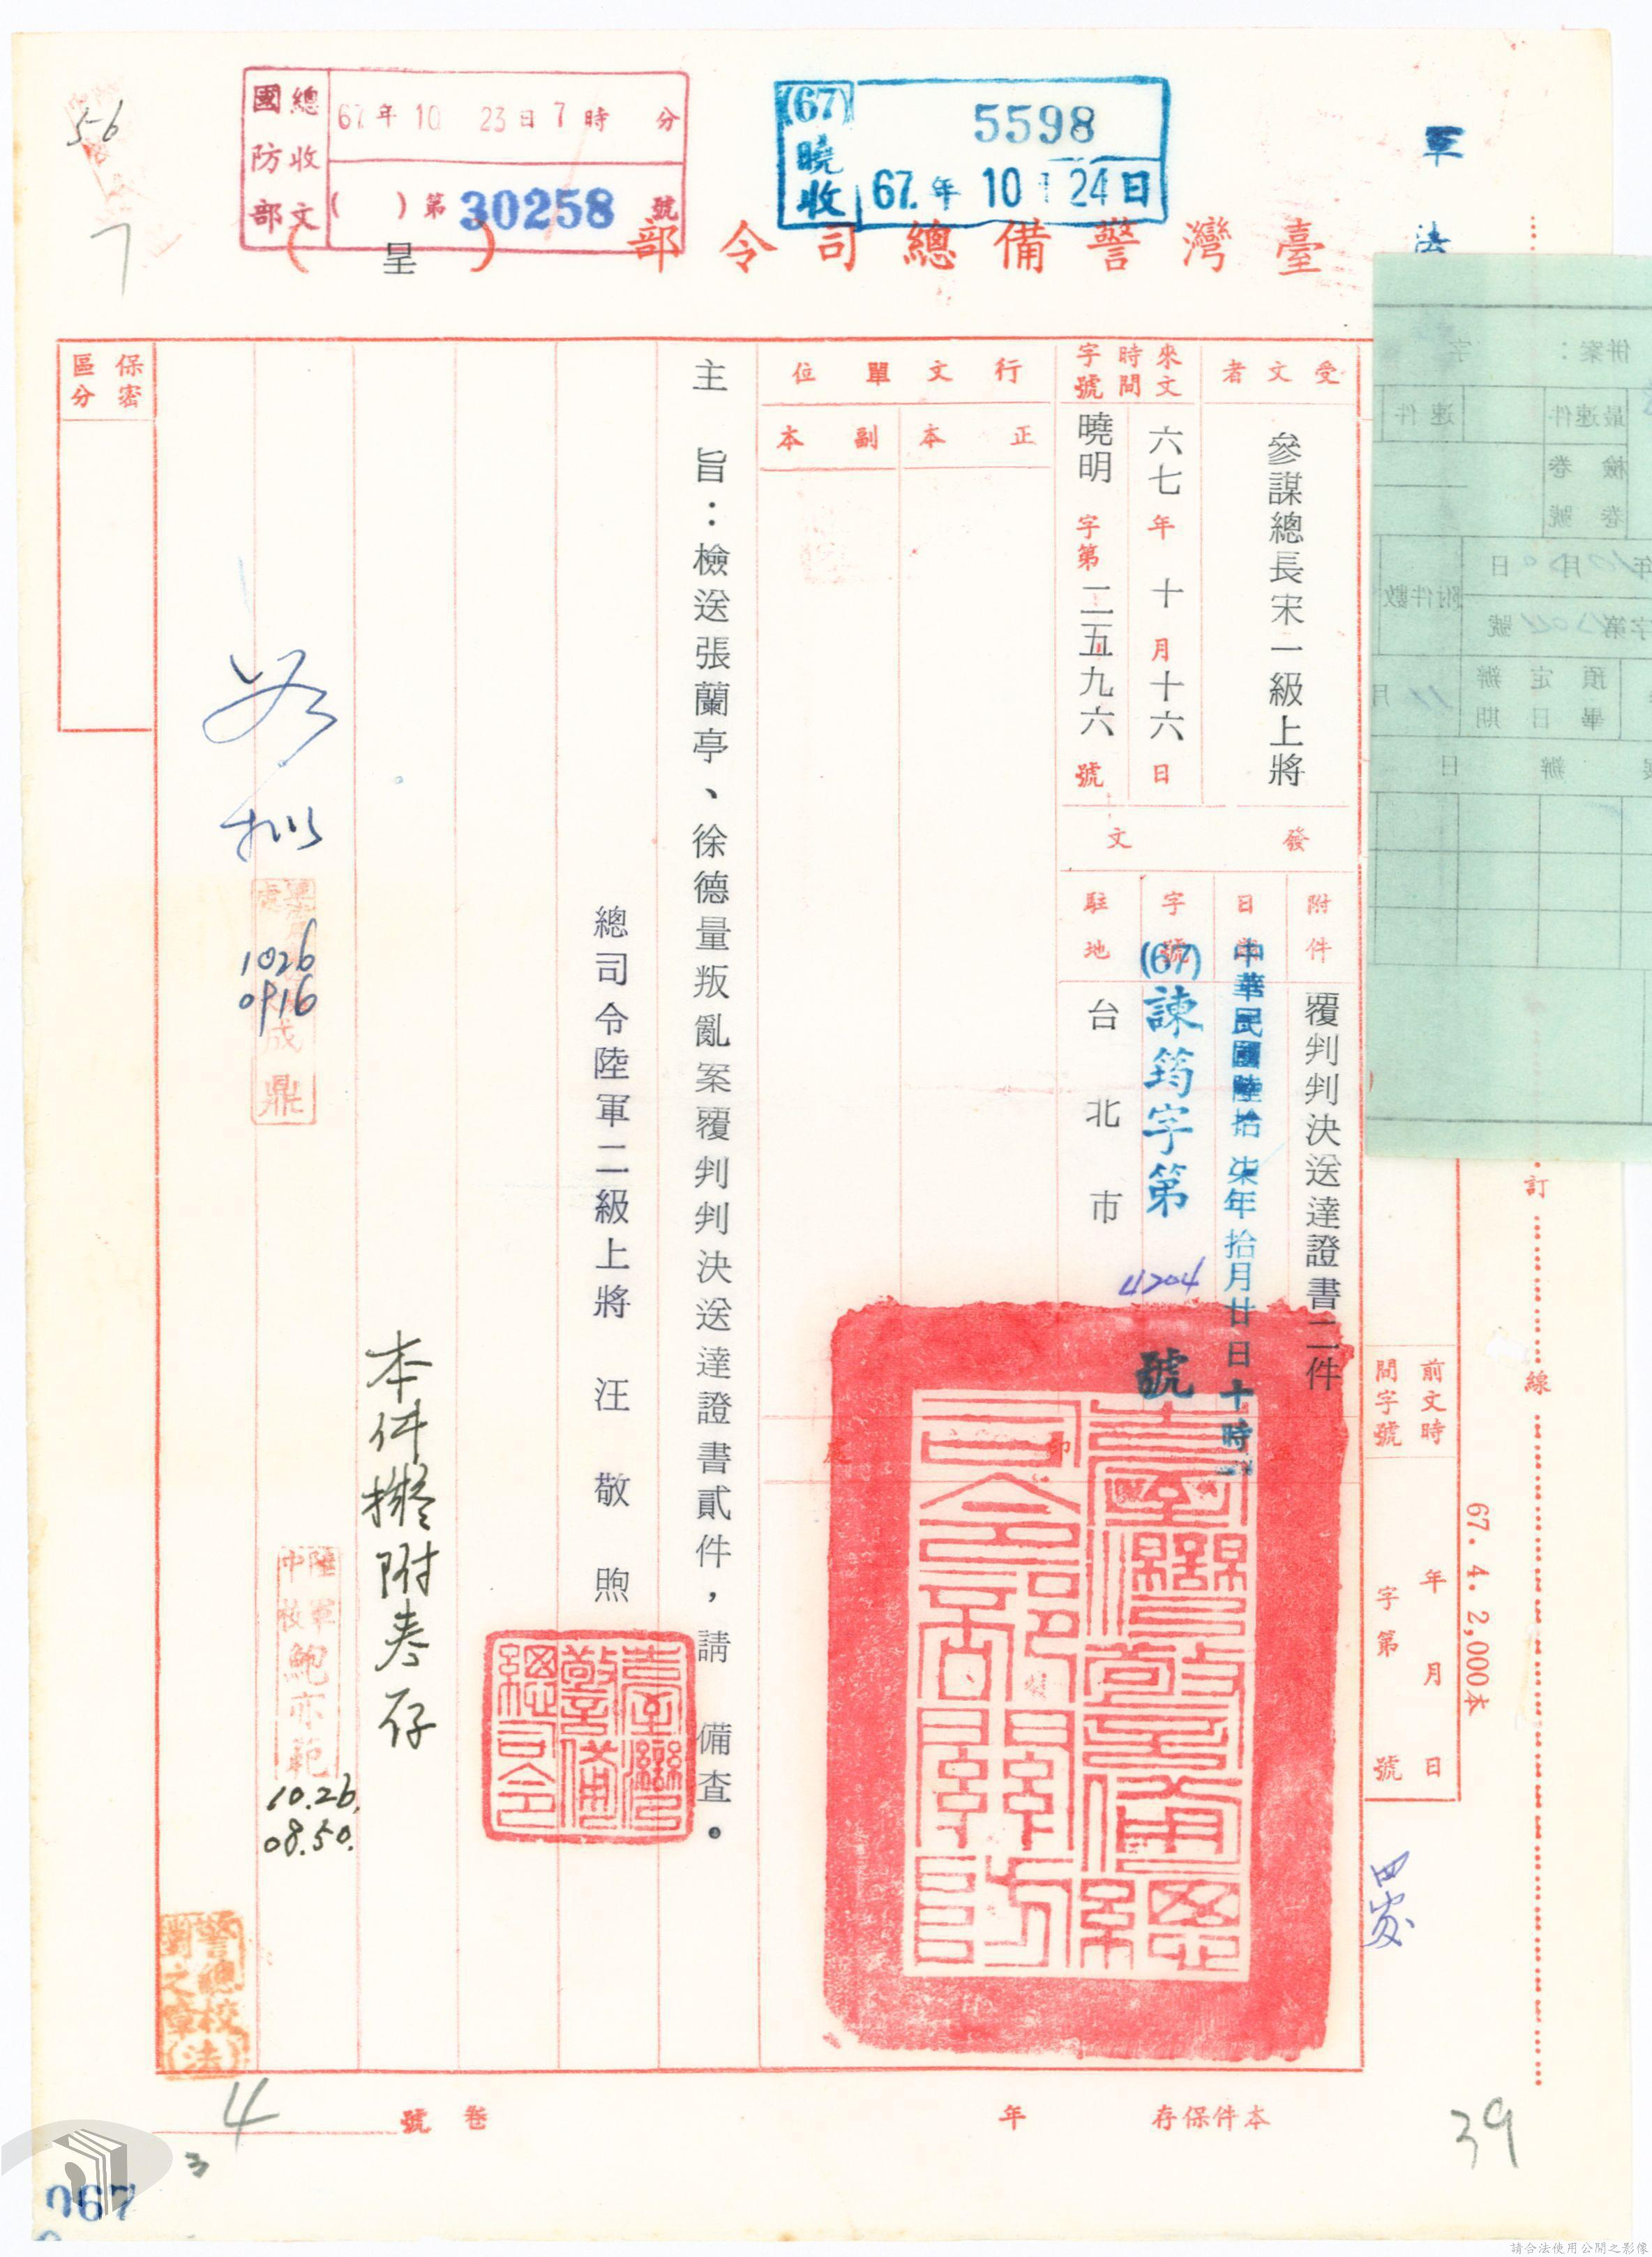 5-6
7
國防部
總收文
67年10 23日7時 分
( )第30258號
(67)
曉收
5598
67.年10 24日
軍法
臺灣警備總司令部
(呈)
受文者
參謀總長宋一級上將
來文時間
字號
六七年十月十六日
曉明字第二五九六號
行文單位
正本
副本
發文
附件
覆判判決送達證書二件
日期
中華民國陸拾柒年拾月廿日十時
字號
(67)諫筠字第4204號
駐地
台北市
主旨：檢送張蘭亭、徐德量叛亂案覆判判決送達證書貳件，請 備查。
總司令陸軍二級上將 汪敬煦
臺灣警備總司令
臺灣警備總司令部關防
本件擬附卷存
陸軍中校鮑亦範
10.26.
08.50.
擬
1026
0916
成鼎
保密區分
警總校
劉之章
(法)
併案： 字
最速件
速件
檢卷
卷號
年 月 日
字第 號
附件數
預定辦畢日期
月
辦
日
訂
線
前文時間字號
年 月 日
字第 號
67. 4. 2,000本
四
本件保存 年
卷 號
4
3
39
067
請合法使用公開之影像